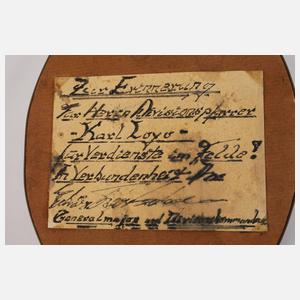 Zur Erinnerung
Für Herrn Divisionspfarrer
- Karl Loyo -
für Verdienste im Felde!
In Verbundenheit
Generalmajor und Divisionskommandeur